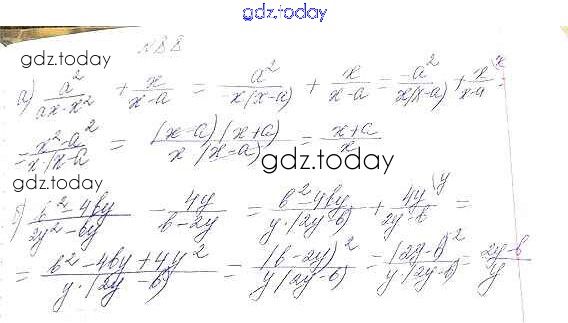 gdz.today
№ 88
gdz.today
а) a²/(ax-x²) + x/(x-a) = a²/(-x(x-a)) + x/(x-a) = -a²/(x(x-a)) + x/(x-a) \x =
= (x²-a²)/(x(x-a) = (x-a)(x+a)/(x(x-a)) = (x+a)/x
gdz.today
gdz.today
б) (b²-4by)/(2y²-by) - 4y/(b-2y) = (b²-4by)/(y·(2y-b)) + 4y/(2y-b) \y =
= (b²-4by+4y²)/(y·(2y-b)) = (b-2y)²/(y(2y-b)) = (2y-b)²/(y(2y-b)) = (2y-b)/y